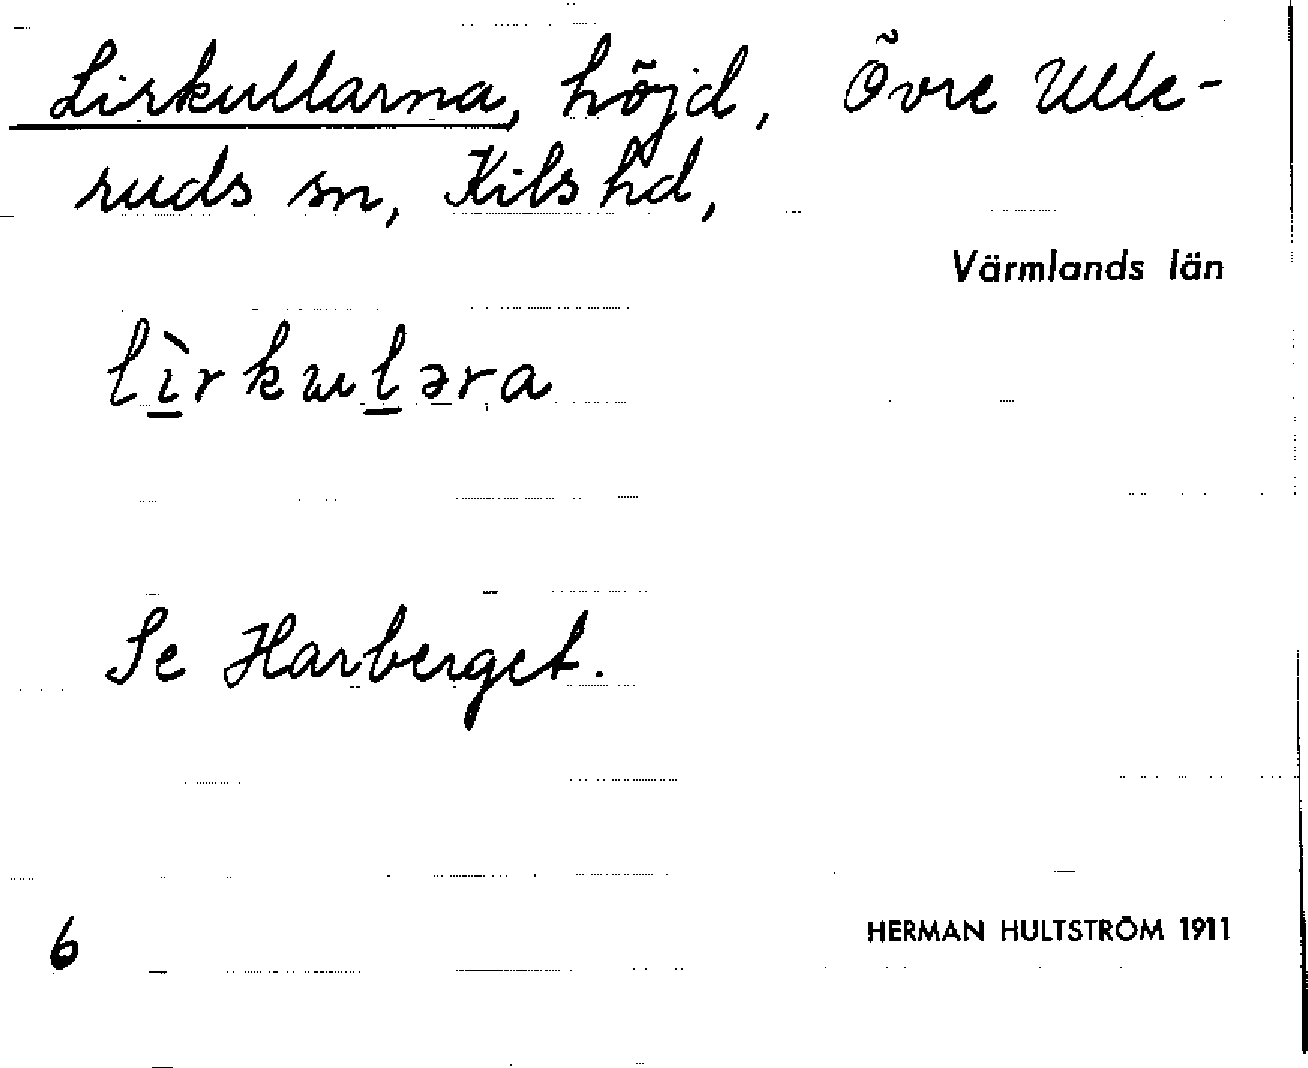 Lirkullarna, höjd, Övre Ulle-
ruds sn, Kils hd,
Värmlands län
lìrkɯləra
Se Harberget.
6
HERMAN HULTSTRÖM 1911